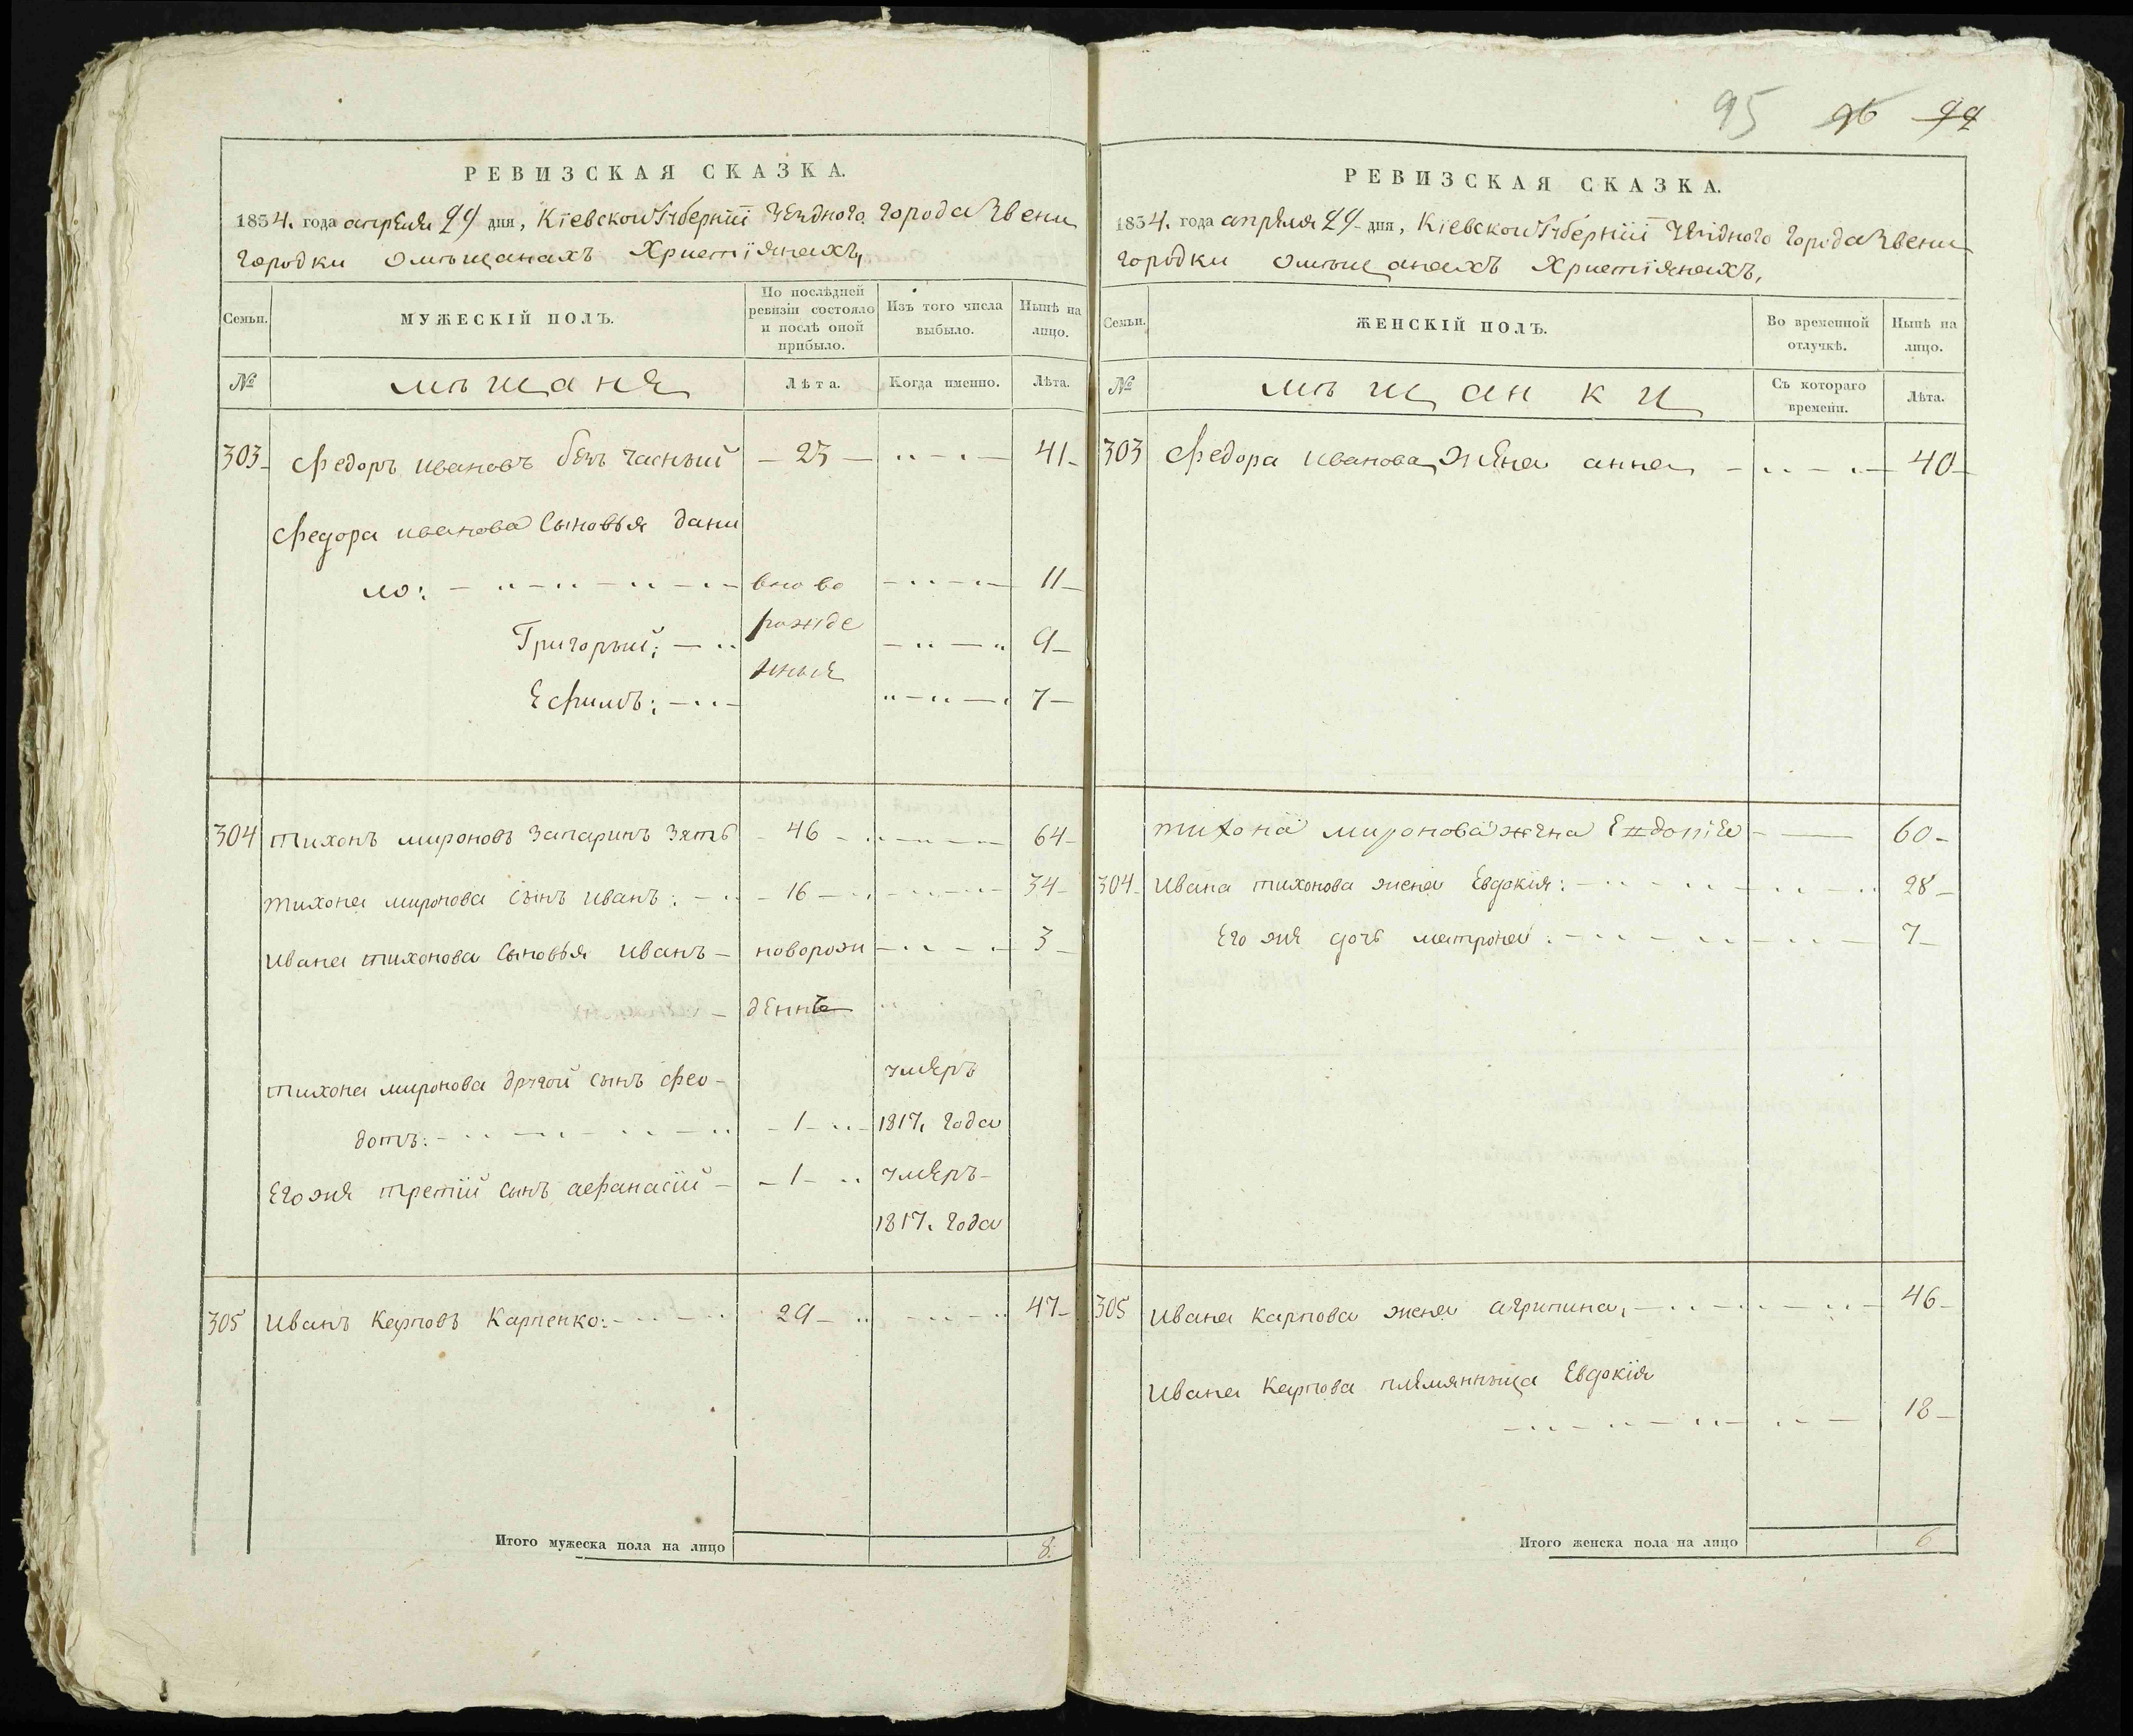 95 96 99
РЕВИЗСКАЯ СКАЗКА.
1834. года апреля 29 дня, Кіевской Губерніи уезднаго города Звени
городки омѣщанахъ Христіянахъ,
Семьи.
МУЖЕСКІЙ ПОЛЪ.
По послѣдней ревизіи состояло и послѣ оной прибыло.
Изъ того числа выбыло.
Нынѣ на лицо.
№
мѣщане
Лѣта.
Когда именно.
Лѣта.
303 Федоръ Ивановъ безчасный — 23 — 41
Федора иванова сыновья дани
ло: — вново — 11
рожде
Григорыи; — 9
ные
Ефимъ: — 7
304 Тихонъ мироновъ Запаринъ Зять 46 — 64
Тихона миронова сынъ иванъ: — 16 — 34
Ивана тихонова сыновья иванъ — поворож — 3
денне
Тихона миронова другой сынъ фео- умеръ
дотъ: — 1 — 1817. года
Его же третіи сынъ афанасіи — 1 — умеръ
1817. года
305 Иванъ Карповъ Карпенко: — 29 — 47
Итого мужеска пола на лицо 8.
РЕВИЗСКАЯ СКАЗКА.
1834. года апреля 29 дня, Кіевской Губерніи уезднаго города Звени
городки омѣщанахъ Христіянахъ,
Семьи.
ЖЕНСКІЙ ПОЛЪ.
Во временной отлучкѣ.
Нынѣ на лицо.
№
мѣщанки
Съ котораго времени.
Лѣта.
303 Федора иванова жена анна — 40
Тихона миронова жена — 60
304 Ивана тихонова жена Евдокія: — 28
Его же дочь матрона: — 7
305 Ивана Карпова жена агрипина, — 46
Ивана Карпова племянныца Евдокія
— 18
Итого женска пола на лицо 6